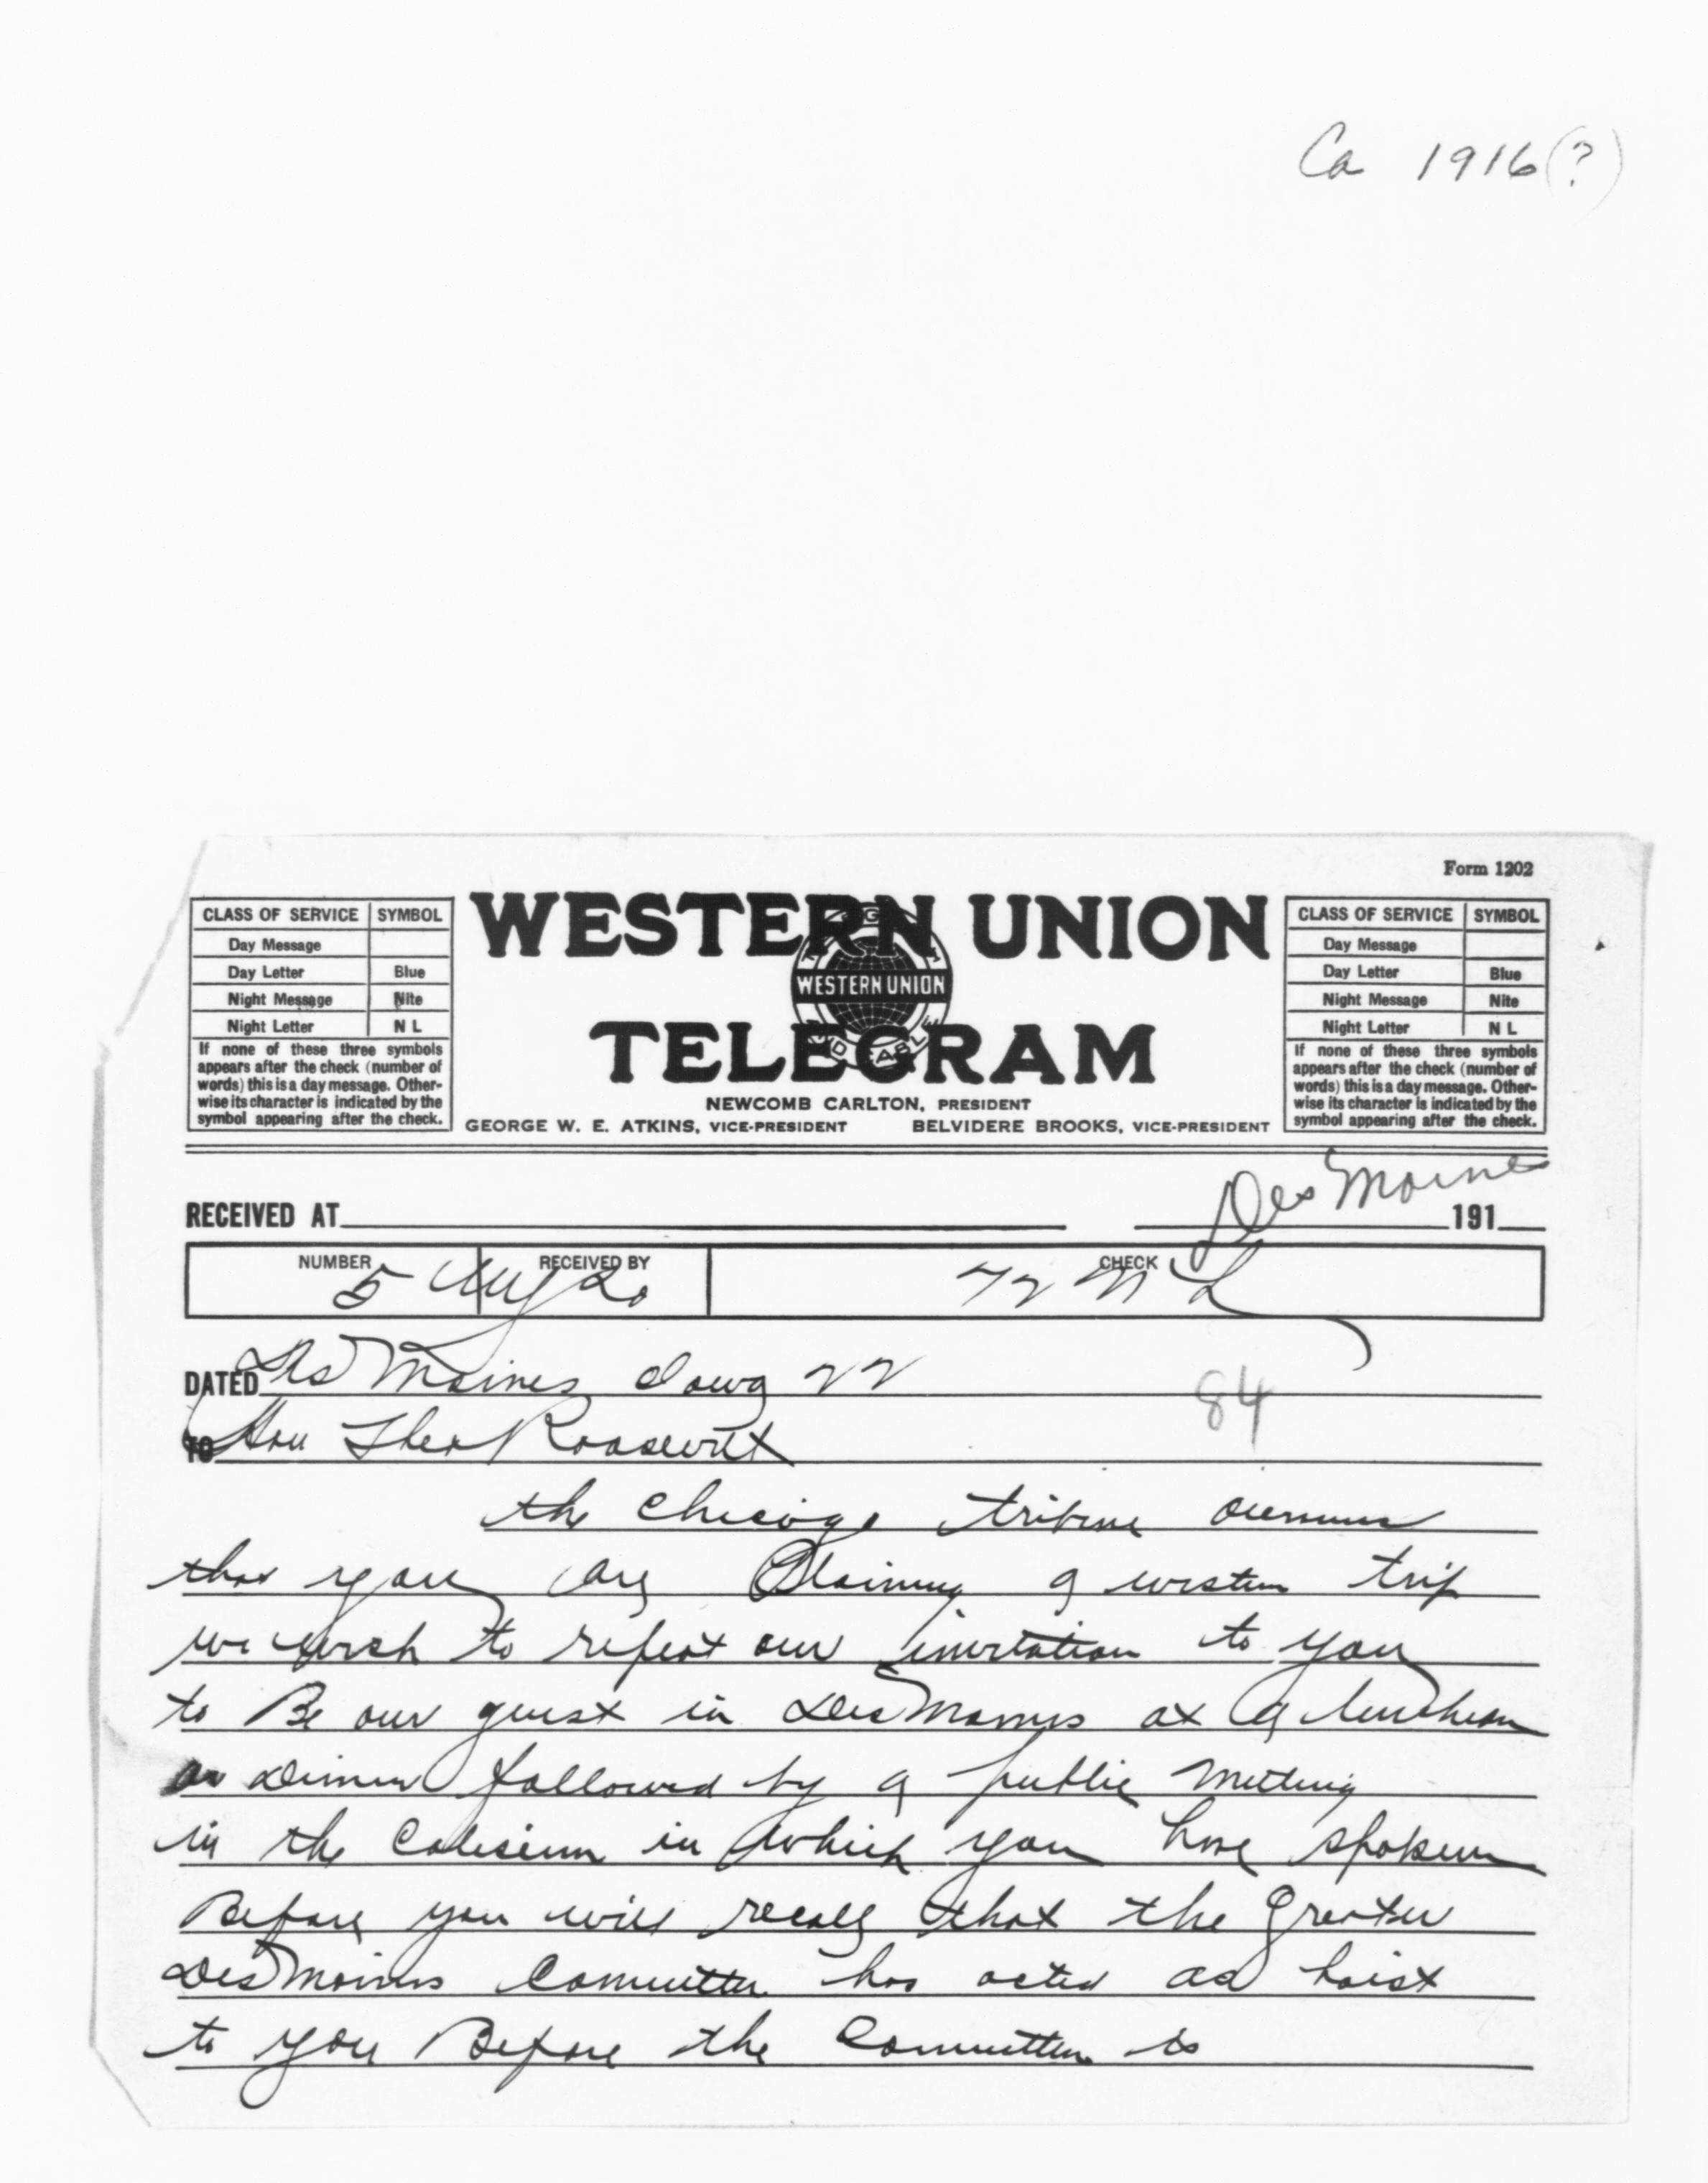 Ca 1916(?)
Form 1202
CLASS OF SERVICE SYMBOL
Day Message
Day Letter Blue
Night Message Nite
Night Letter N L
If none of these three symbols
appears after the check (number of
words) this is a day message. Other-
wise its character is indicated by the
symbol appearing after the check.
WESTERN UNION
WESTERN UNION
TELEGRAM
NEWCOMB CARLTON, PRESIDENT
GEORGE W. E. ATKINS, VICE-PRESIDENT BELVIDERE BROOKS, VICE-PRESIDENT
CLASS OF SERVICE SYMBOL
Day Message
Day Letter Blue
Night Message Nite
Night Letter N L
If none of these three symbols
appears after the check (number of
words) this is a day message. Other-
wise its character is indicated by the
symbol appearing after the check.
Des Moines
RECEIVED AT 191
NUMBER RECEIVED BY CHECK
5 72 N L
DATED Des Moines Iowa 22
84
TO Hon Theo Roosevelt
the Chicago tribune
that you are Plaining a western trip
we wish to repeat our invitation to you
to Be our guest in Des Moines at a luncheon
or Dinner followed by a public meeting
in the Coliseum in which you have spoken
Before you will recall that the greater
Des Moines Committee has acted as hoist
to you Before the Committee is